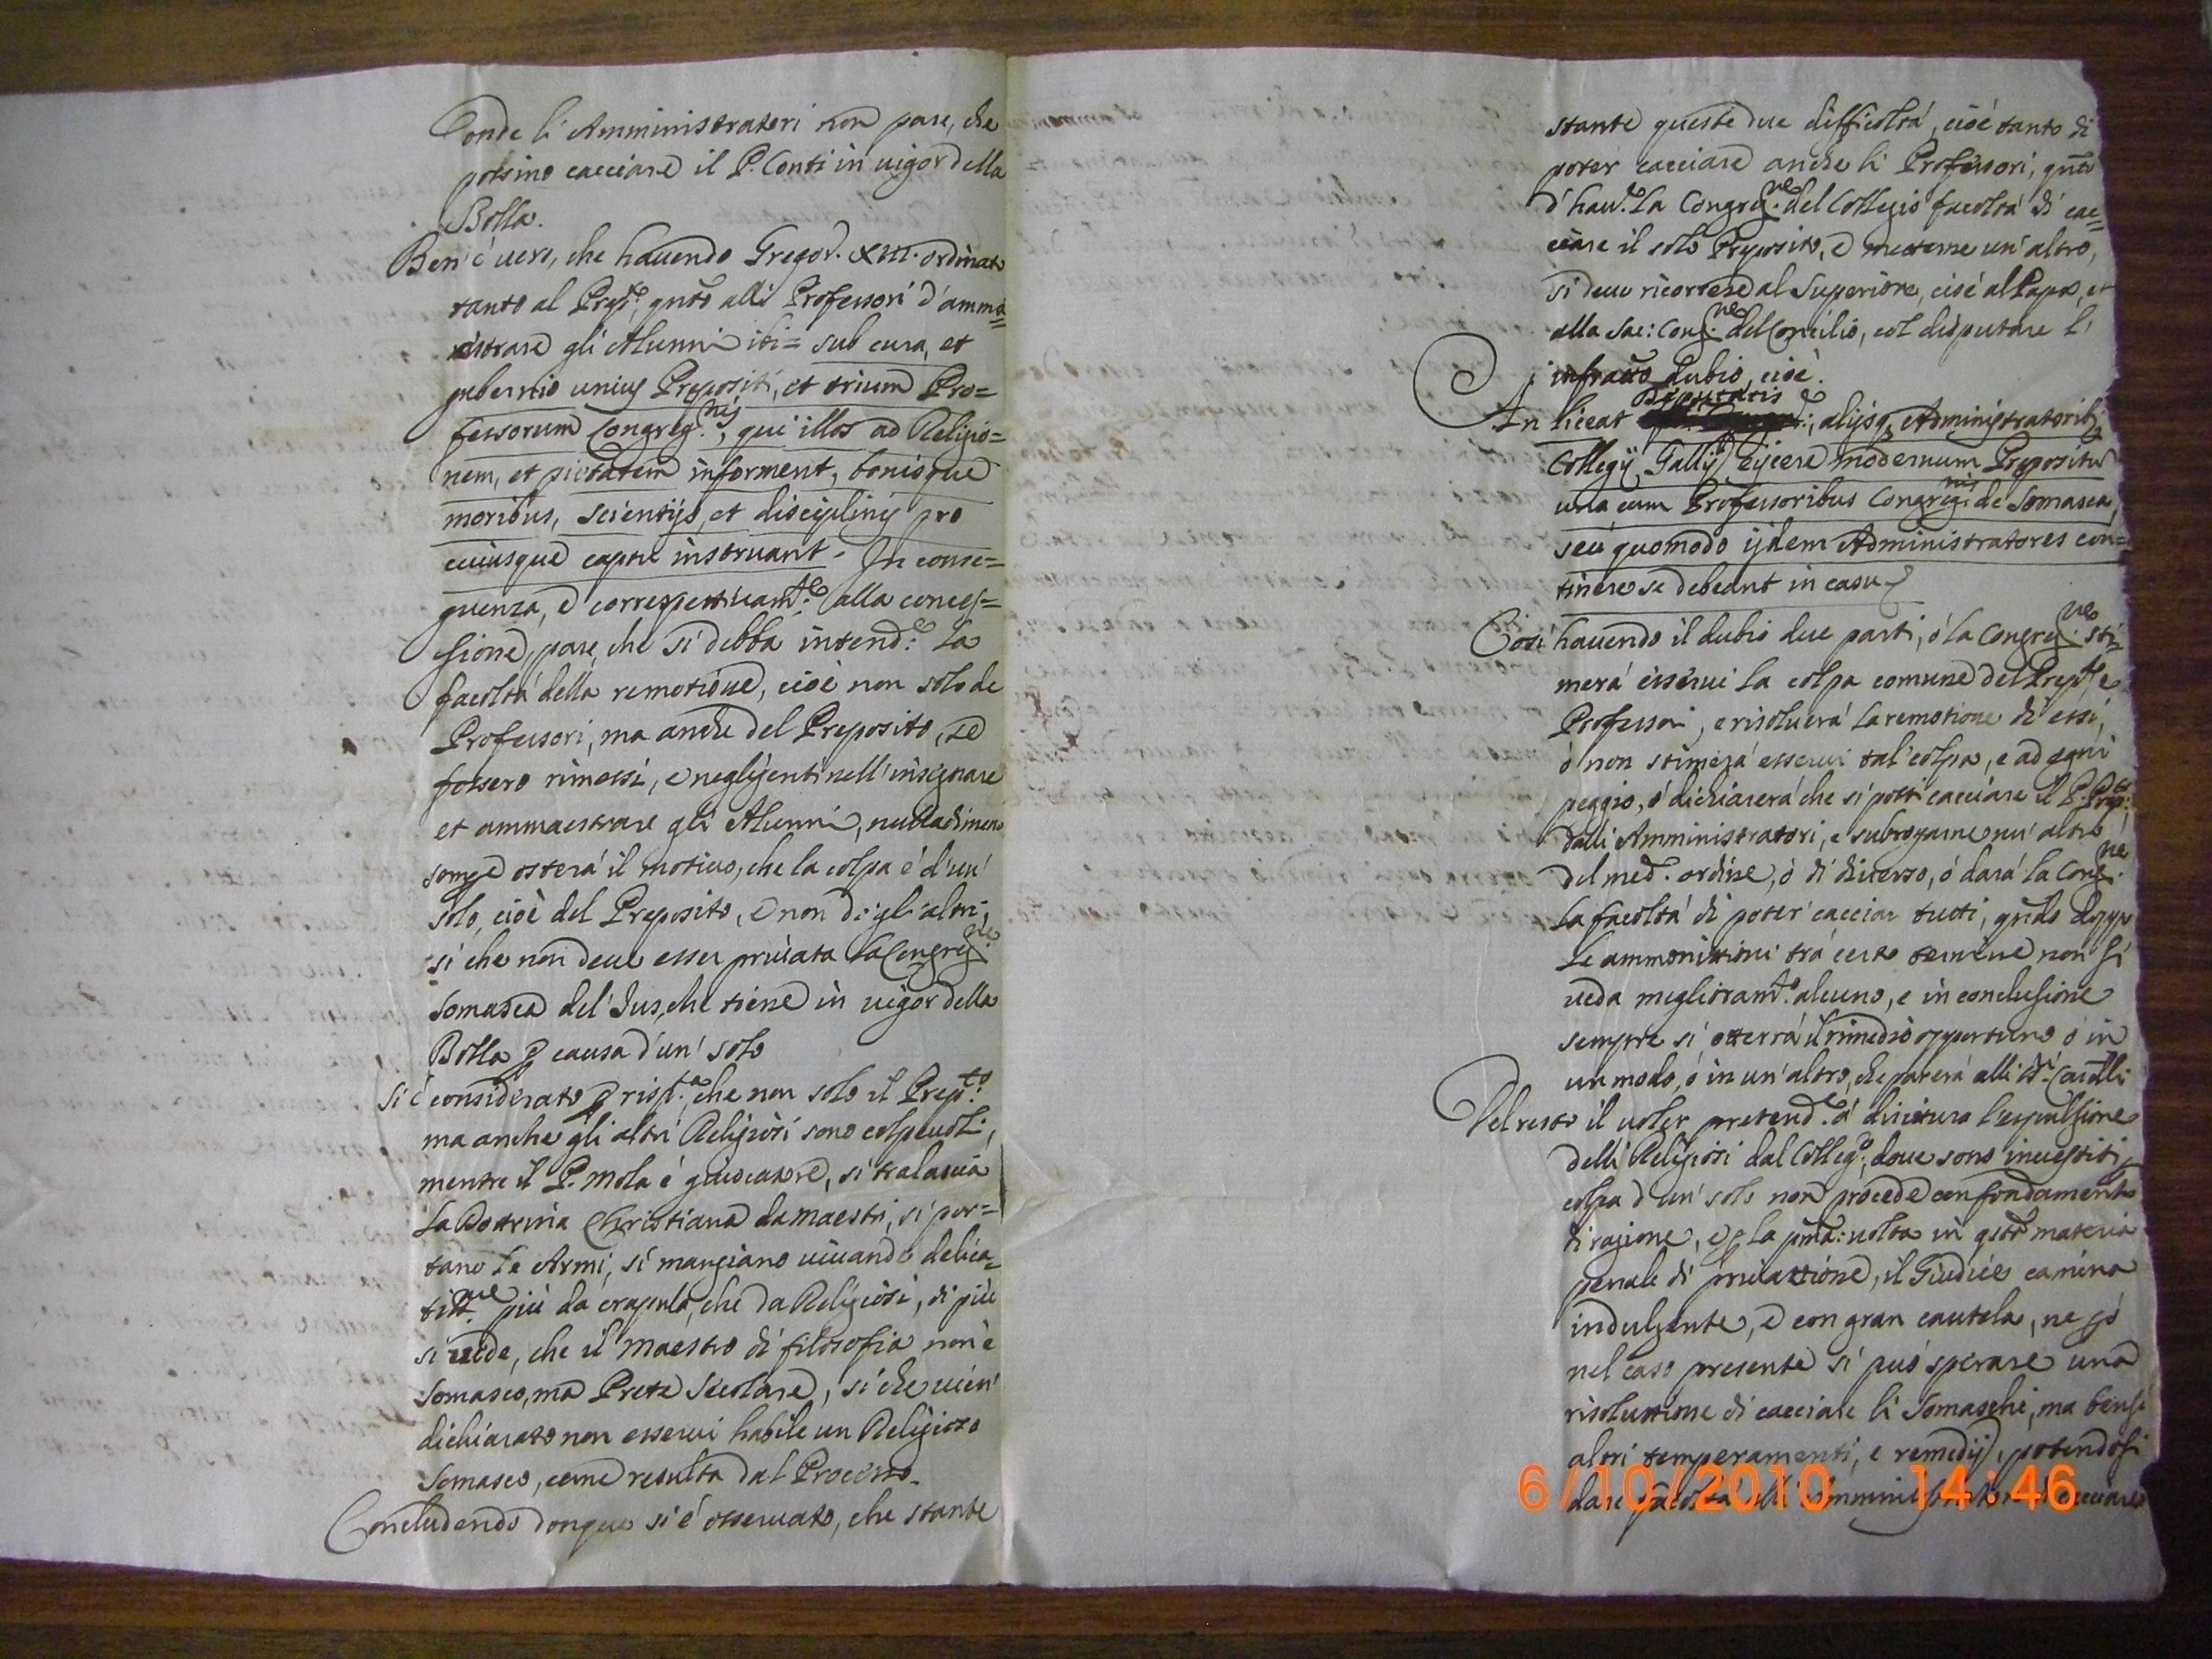 Onde li Amministratori non pare, che
possino cacciare il P. Conti in uigor della
Bolla.
Ben è uero, che hauendo Gregor. XIII. ordinato
tanto al Prep.to, qnto alli Professori d'amma=
estrare gli Alunni ibi= sub cura, et
gubernio unius Prepositi, et trium Pro=
fessorum Congreg.nis, qui illos ad Religio=
nem, et pietatem informent, bonisque
moribus, scientijs, et disciplinis pro
cuiusque captu instruant. In conse=
quenza, e correspettiuam.te alla conces=
sione, pare, che si debba intend.e la
facoltà della remotione, cioè non solo de
Professori, ma anche del Preposito, se
fossero rimessi, e negligenti nell'insegnare
et ammaestrare gli Alunni, nulladimeno
sempre osterà il motiuo, che la colpa è d'un'
solo, cioè del Preposito, e non degli altri,
si che non deue esser priuata la Congreg.ne
Somasca del Jus, che tiene in uigor della
Bolla p causa d'un' solo
Si è considerato p risp.ta che non solo il Prep.to
ma anche gli altri Religiosi sono colpeuoli,
mentre il P. Mola è giuocatore, si tralascia
la Dottrina Christiana da Maestri, si por=
tano le Armi, si mangiano uiuande delica=
tiss.me più da crapula, che da Religiosi, di più
si uede, che il Maestro di filosofia non è
Somasco, ma Prete Secolare, si che uien'
dichiarato non esserui habile un Religioso
Somasco, come resulta dal Processo.
Concludendo donque si è osseruato, che stante
stante queste due difficoltà, cioè tanto di
poter cacciare anche li Professori, qnto
d'hau.e la Congreg.ne del Collegio facoltà di cac=
ciare il solo Preposito, e metterne un'altro,
si deue ricorrere al Superiore, cioè al Papa, et
alla Sac: Cong.ne del Concilio, col disputare l'
infratto dubio, cioè.
An liceat Deputatis, alijsq Administratorib.
Collegij Gallij eijcere modernum Prepositu
una cum Professoribus Congreg.nis de Somasca,
seu quomodo ijdem Administratores con=
tinere se debeant in casu
Così hauendo il dubio due parti, ò la Congreg.ne sti=
merà esserui la colpa comune del Prep.to e
Professori, e risoluerà la remotione di essi,
ò non stimerà esserui tal'colpa, e ad ogni
peggio, ò dichiarerà che si possi cacciare il P. Prep.to
dalli Amministratori, e subrogarne un'altro
del med. ordine, ò di diuerso, ò darà la Cong.ne
la facoltà di poter cacciar tutti, qndo doppo
le ammonitioni trà certo termine non si
ueda miglioram.to alcuno, e in conclusione
sempre si otterrà il rimedio opportuno ò in
un modo, ò in un'altro, che parerà alli Cardli
Del resto il uoler pretend.e à dirittura l'espulsione
delli Religiosi dal Colleg.o, doue sono inuestiti p
colpa d'un' solo non procede con fondamento
di ragione, e p la pma: uolta in qsta materia
penale di priuattione, il Giudice camina
indulgente, e con gran cautela, ne p ò
nel caso presente si può sperare una
risoluttione di cacciare li Somaschi, ma bensì
altri temperamenti, e remedij, potendosi
dare facoltà alli Amministratori di cacciare
6/10/2010 14:46